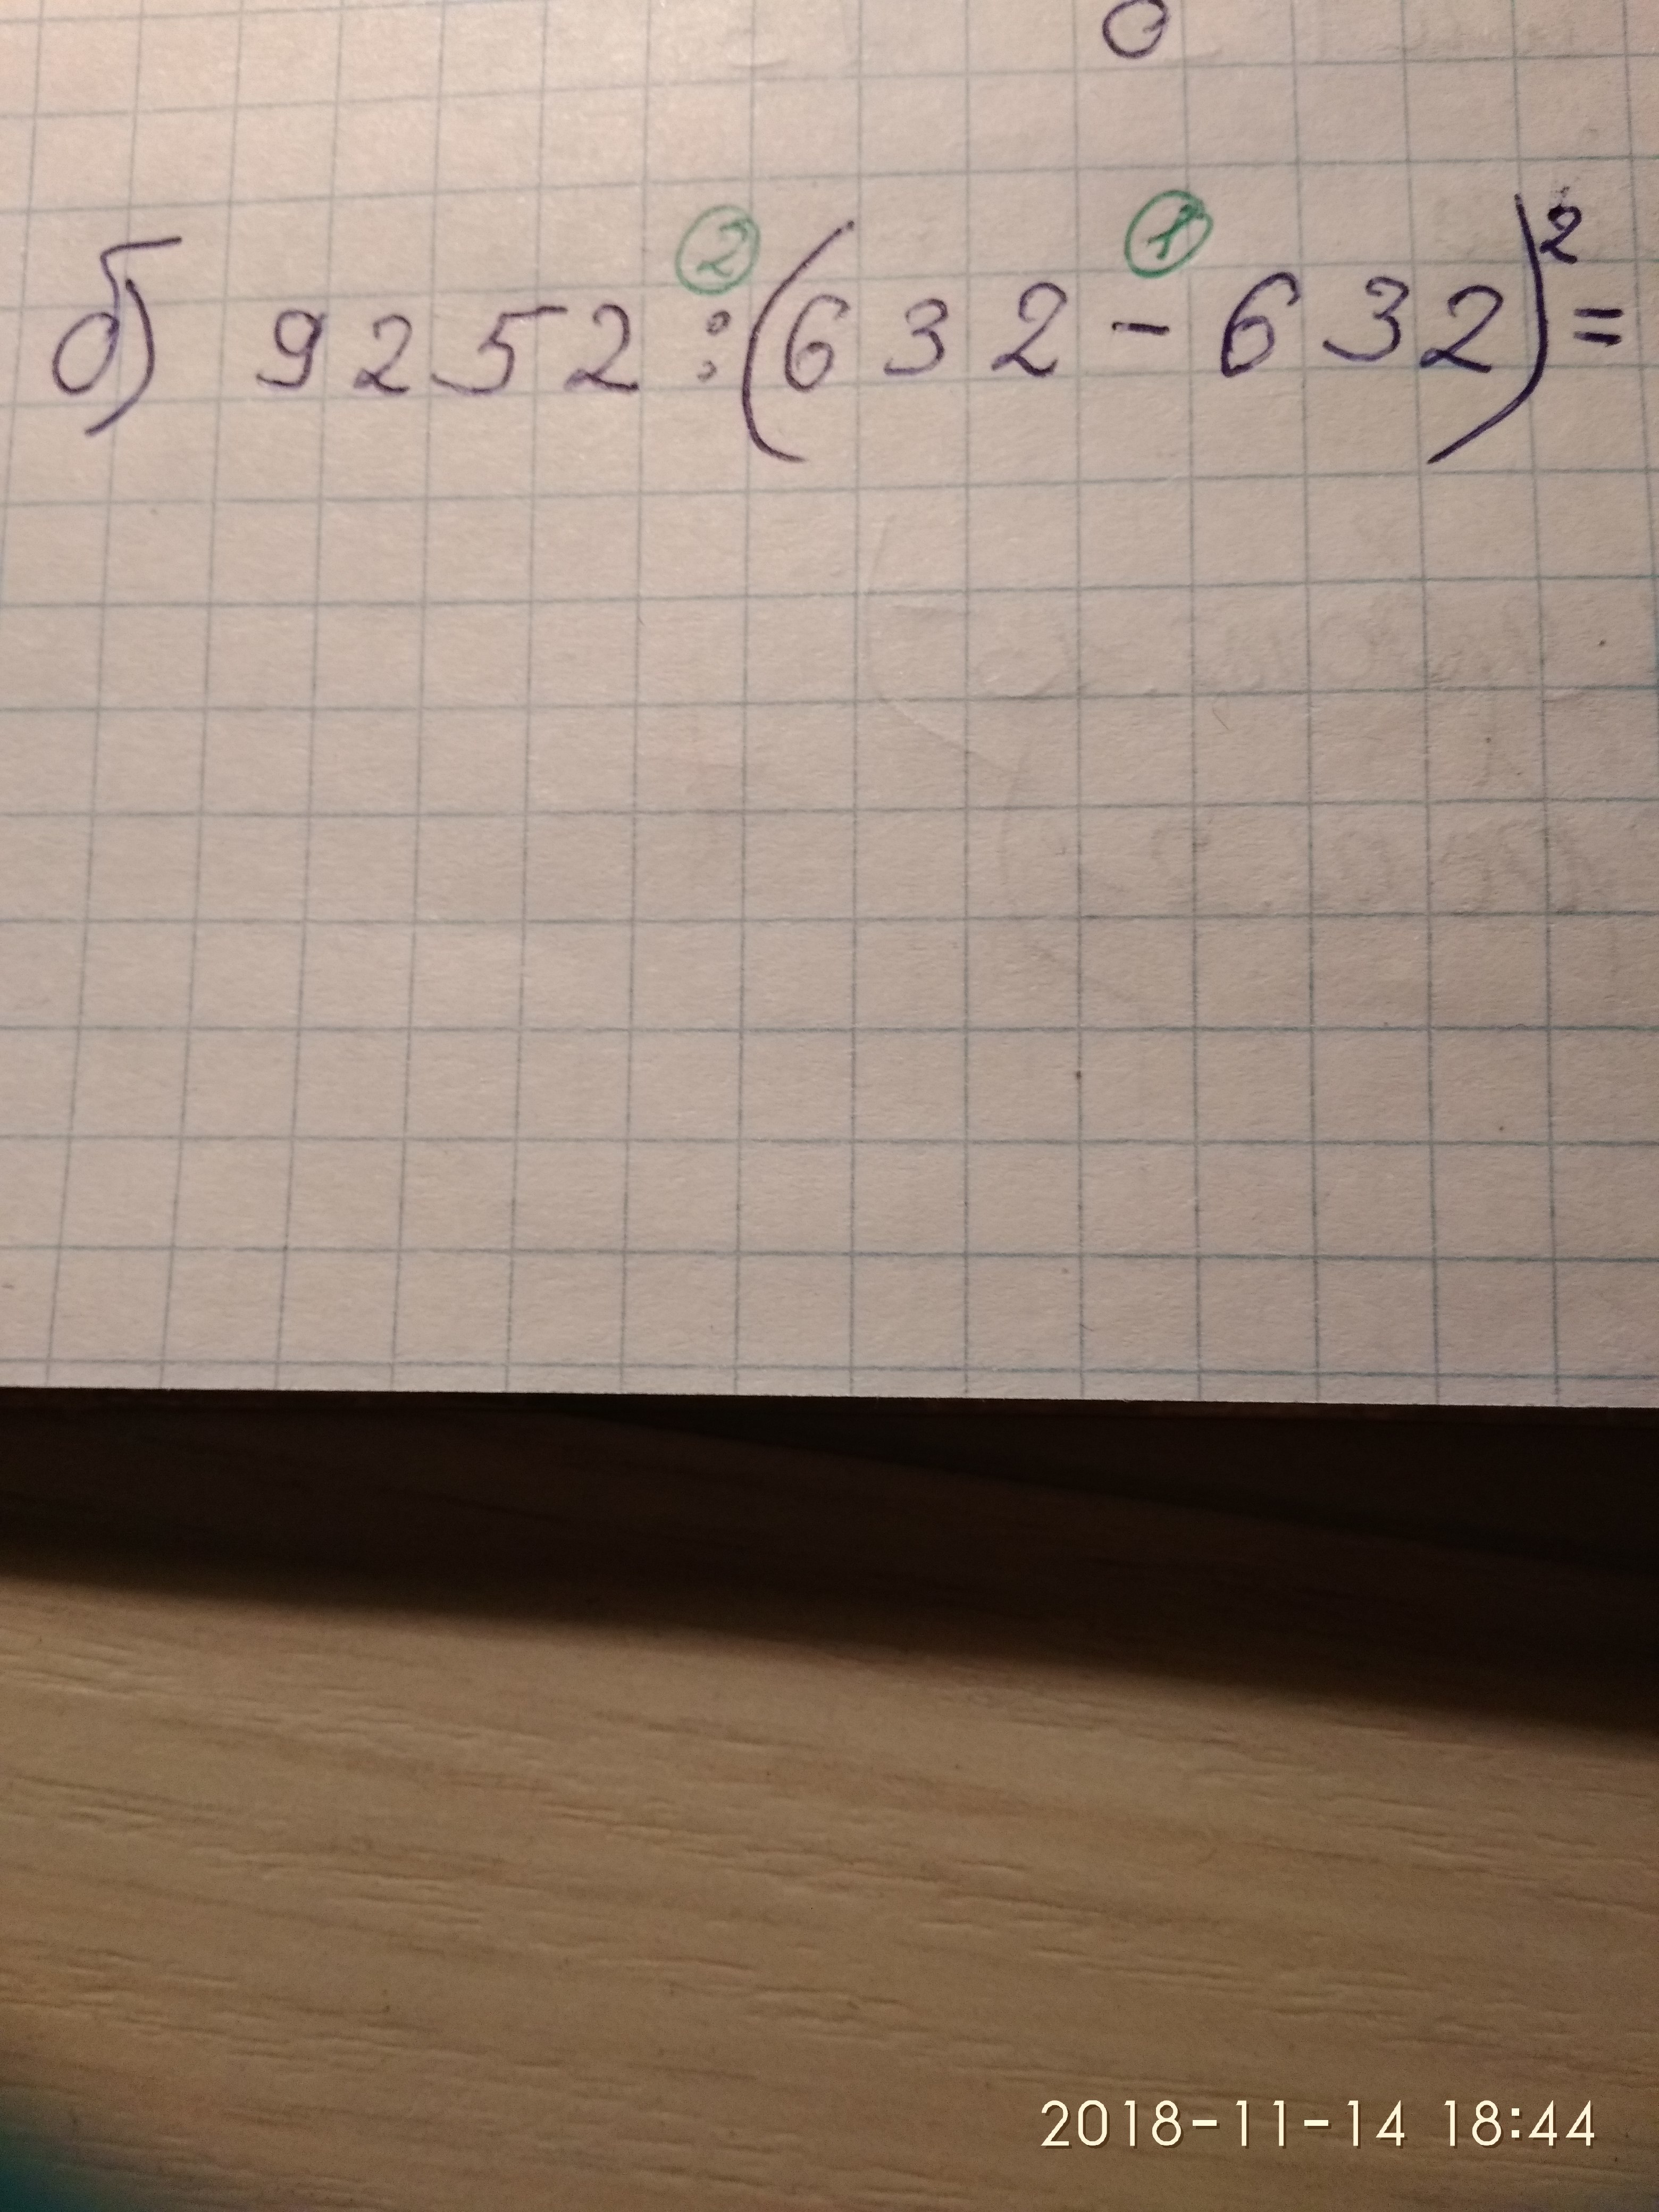 0
② ①
б) 9252:(632-632)²=
2018-11-14 18:44